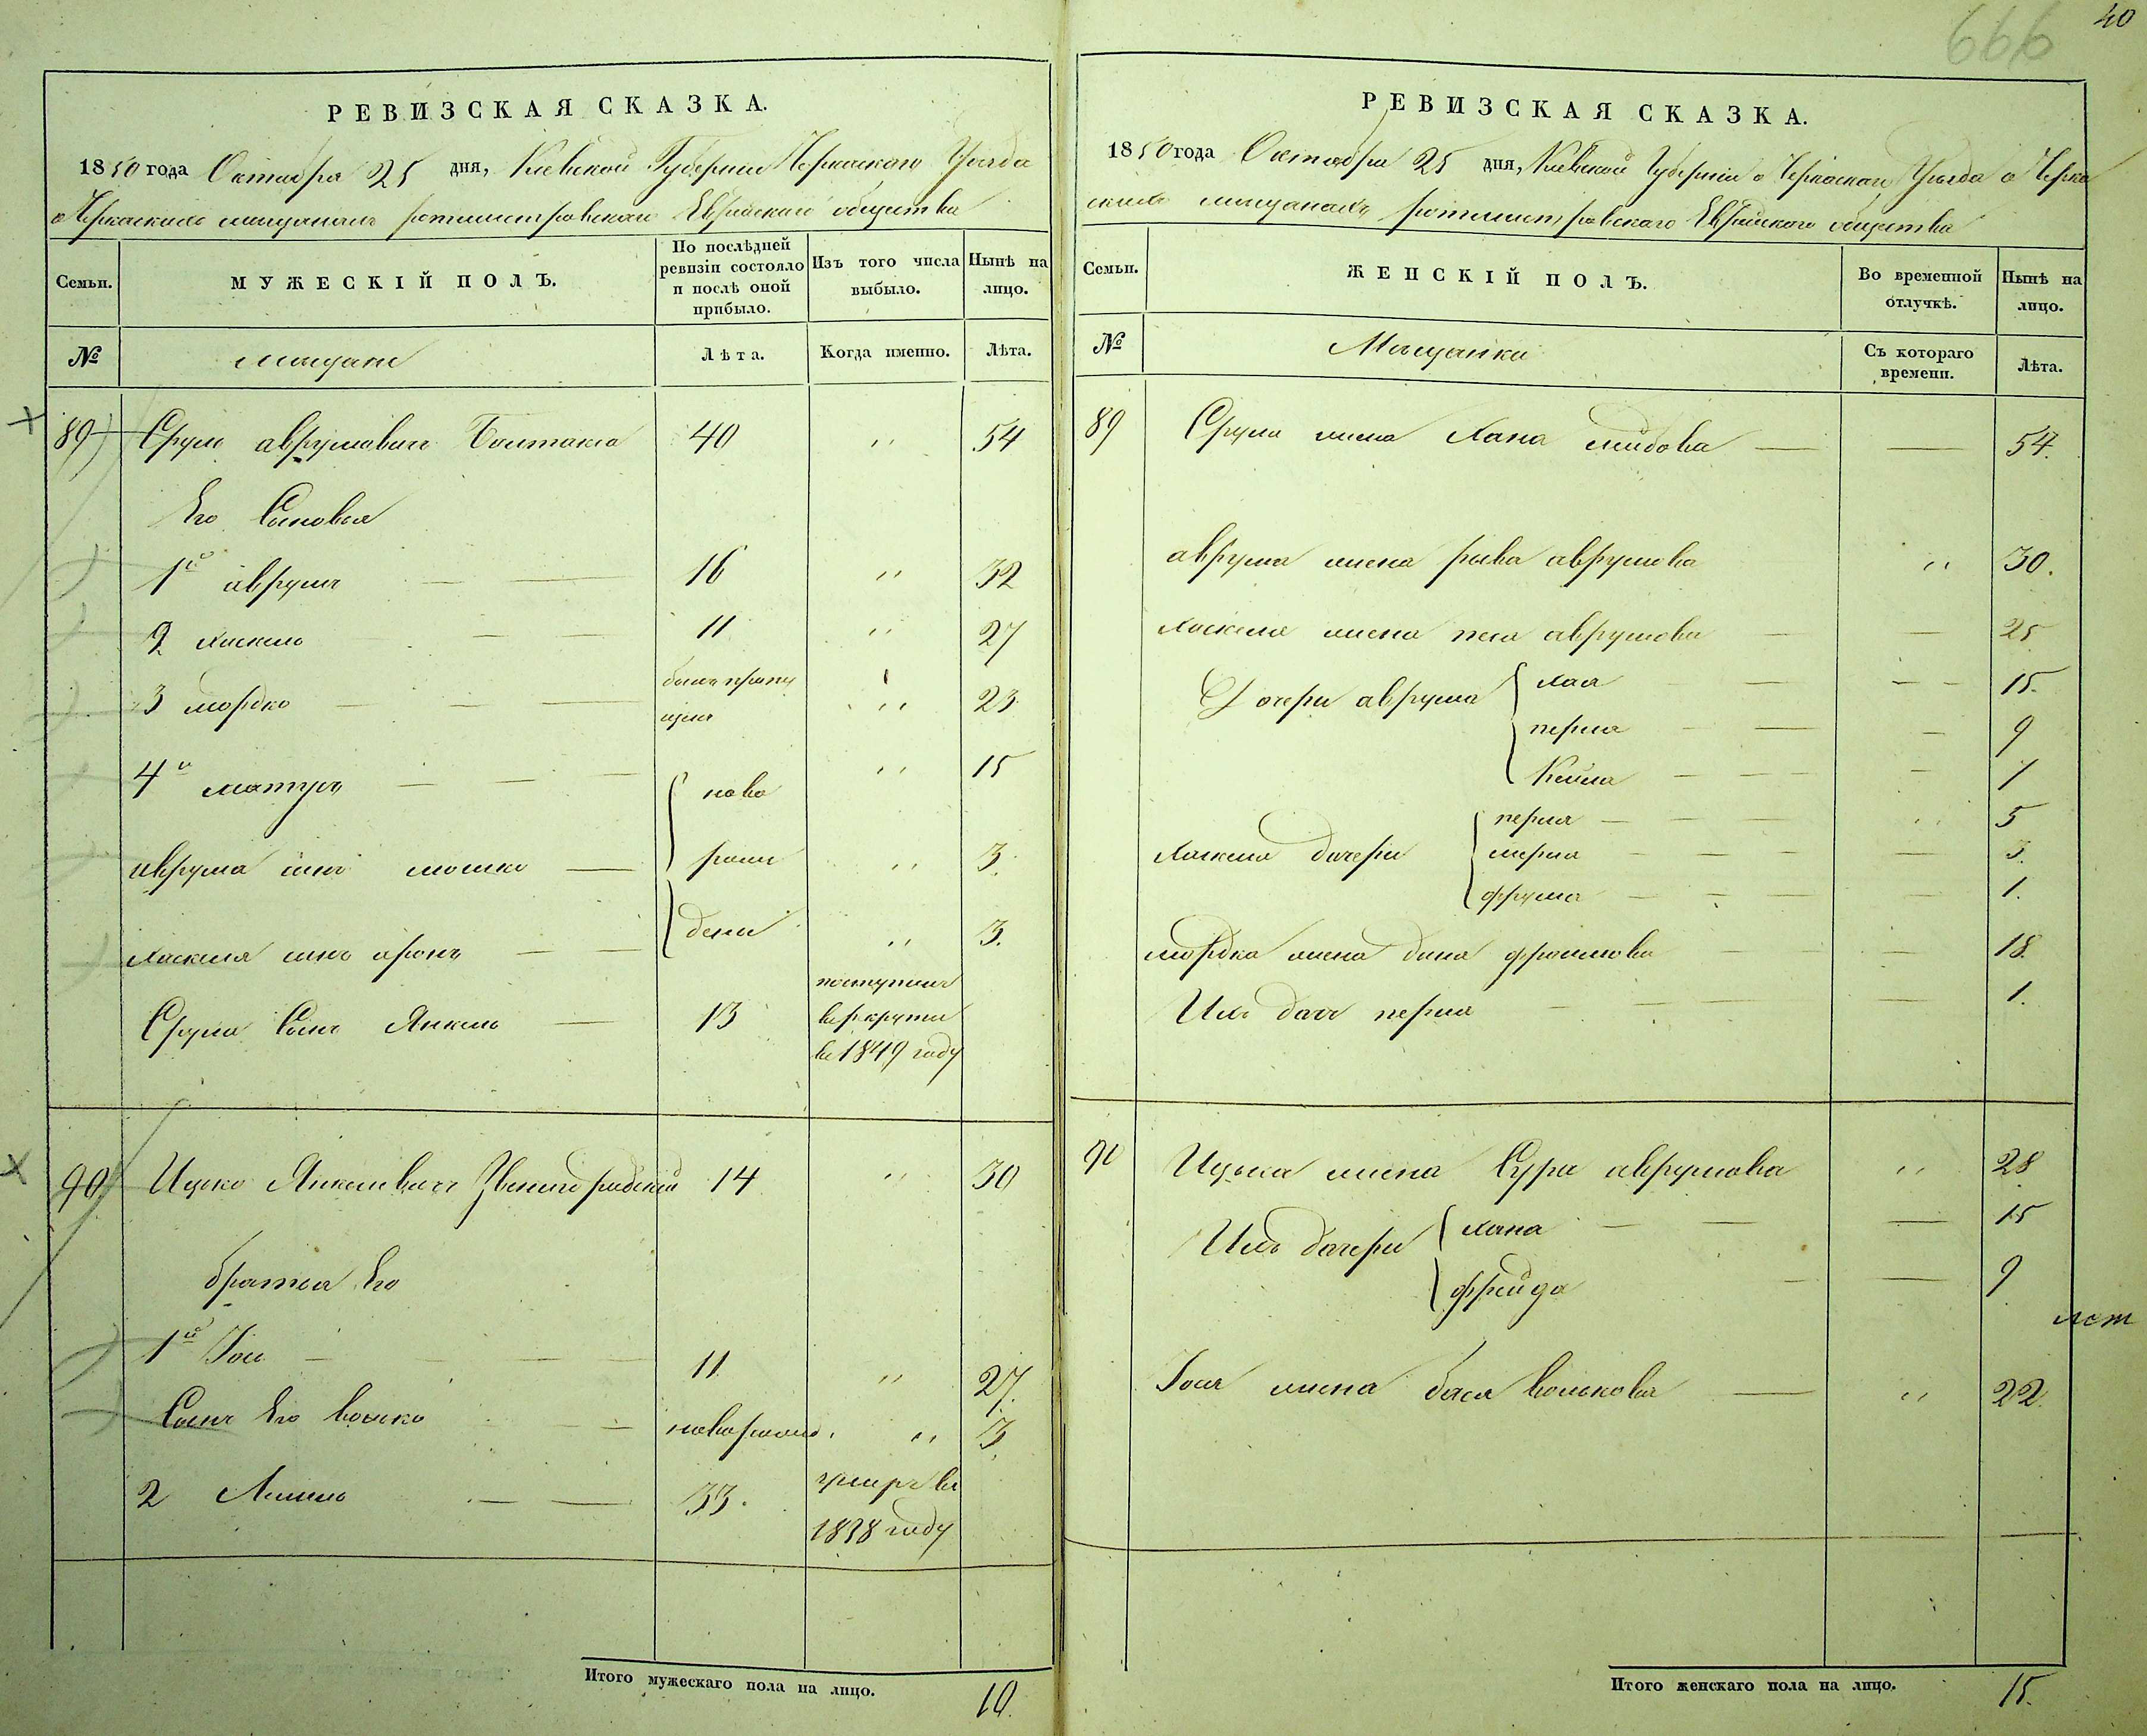 666
40
РЕВИЗСКАЯ СКАЗКА.
1850 года Октября 25 дня, Киевской Губернии Черкаскаго Уезда
о Черкаскихъ мещанахъ ротмистровскаго Еврейскаго общества
Семьи.
МУЖЕСКІЙ ПОЛЪ.
По послѣдней ревизіи состояло и послѣ оной прибыло.
Изъ того числа выбыло.
Нынѣ на лицо.
№
мещане
Лѣта.
Когда именно.
Лѣта.
89 Срул аврумович 40 " 54
Его Сыновья
1й аврум 16 " 32
2 хаскель 11 " 27
3 мордко былъ пропущенъ " 23
4й ново " 15
аврума сынъ мошко рож " 3.
хаскеля сынъ аронъ дени " 3.
Срула Сынъ Янкель 13 поступил в рекруты в 1849 году
90 Ицко Янкелевич Звенигородский 14 " 30
братья Его
1й Іось 11 " 27.
Сынъ Его волько новорожд. " 3
2 33. умеръ в 1838 году
Итого мужескаго пола на лицо. 10.
РЕВИЗСКАЯ СКАЗКА.
1850 года Октября 25 дня, Киевской Губерніи о Черкаскаго Уезда о Черка
скихъ мещанахъ ротмистровскаго Еврейскаго общества
Семьи.
ЖЕНСКІЙ ПОЛЪ.
Во временной отлучкѣ.
Нынѣ на лицо.
№
Мещанки
Съ котораго времени.
Лѣта.
89 Срула жена Хана 54.
аврума жена рыва аврумова " 30.
хаскеля жена песа аврумова 25
Дочери аврума хая 15.
перля 9
Кейла 1
хаскеля дочери перля 5
мерля 3.
фрума 1.
мордка жена дина фроимова 18.
Ихъ дочь перля 1.
90 Ицька жена Сура аврумова " 28
Ихъ дочери хана 15
фрейда 9
Іося жена бася волькова " 22.
Итого женскаго пола на лицо. 15.